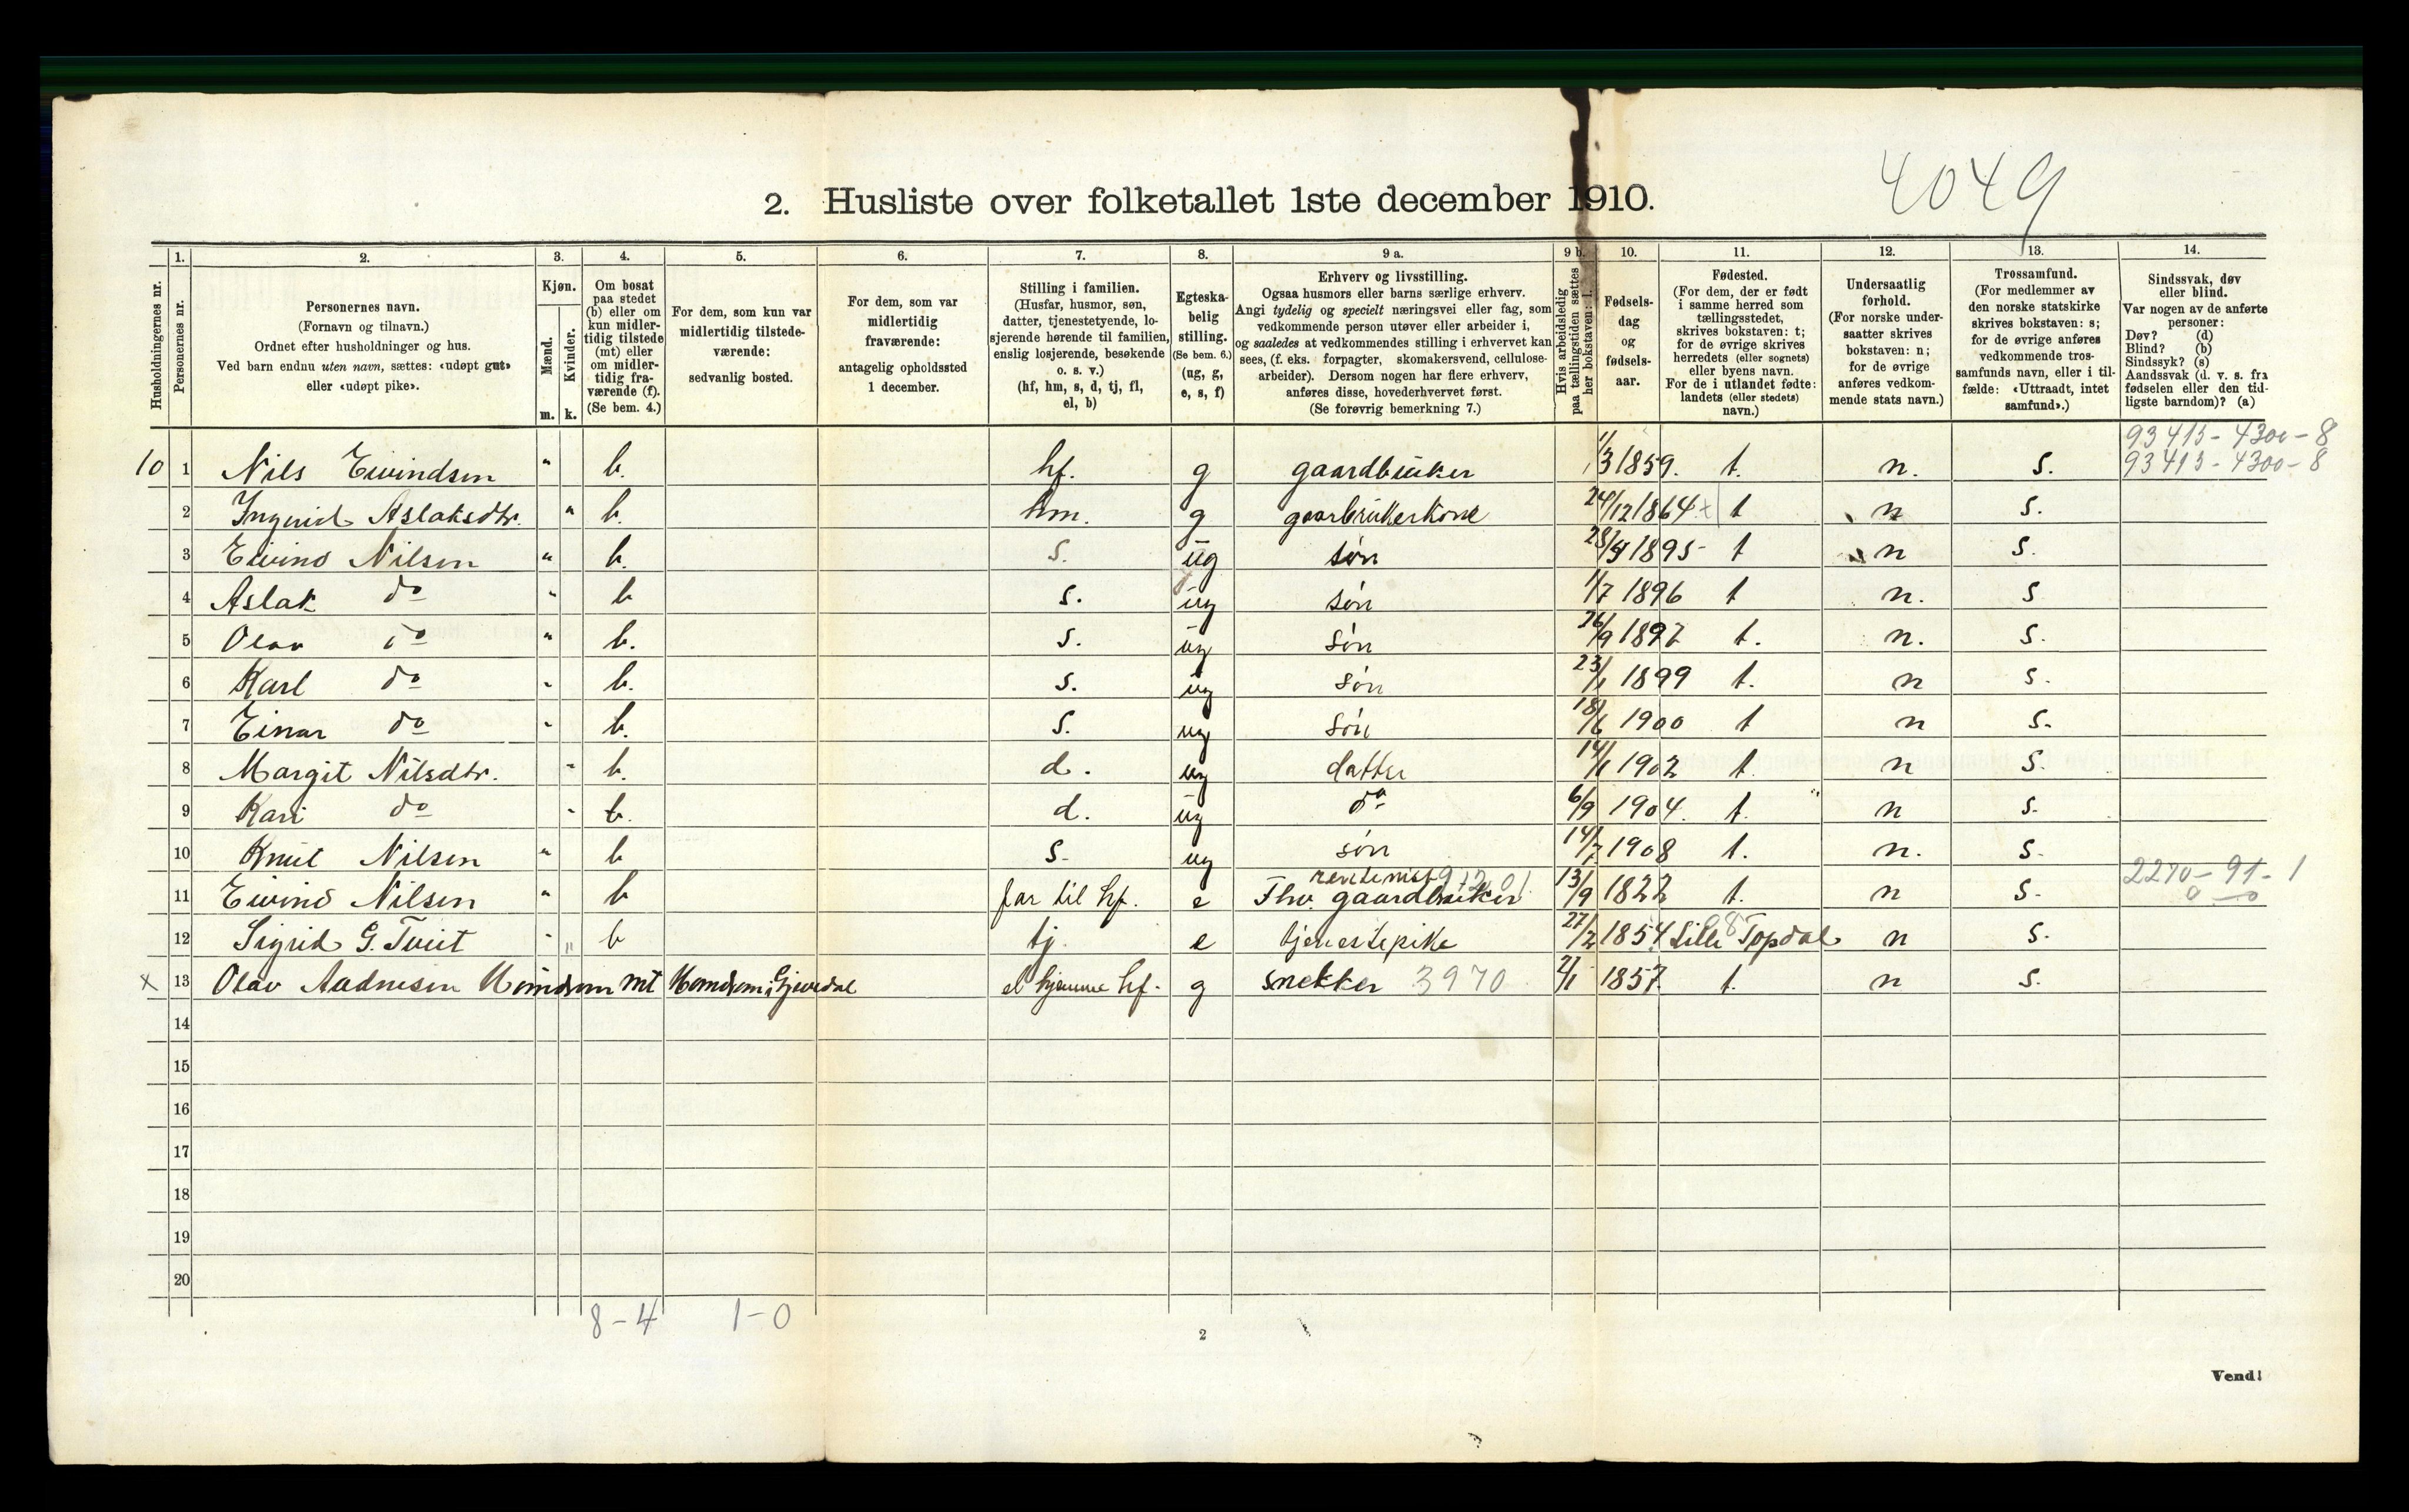 4049
2. Husliste over folketallet 1ste december 1910.
1. 2. 3. 4. 5. 6. 7. 8. 9 a. 9 b. 10. 11. 12. 13. 14.
Husholdningernes nr.
Personernes nr.
Personernes navn.
(Fornavn og tilnavn.)
Ordnet efter husholdninger og hus.
Ved barn endnu uten navn, sættes: «udøpt gut»
eller «udøpt pike».
Kjøn.
Mænd.
Kvinder.
m. k.
Om bosat
paa stedet
(b) eller om
kun midler-
tidig tilstede
(mt) eller
om midler-
tidig fra-
værende (f).
(Se bem. 4.)
For dem, som kun var
midlertidig tilstede-
værende:
sedvanlig bosted.
For dem, som var
midlertidig
fraværende:
antagelig opholdssted
1 december.
Stilling i familien.
(Husfar, husmor, søn,
datter, tjenestetyende, lo-
sjerende hørende til familien,
enslig losjerende, besøkende
o. s. v.)
(hf, hm, s, d, tj, fl,
el, b)
Egteska-
belig
stilling.
(Se bem. 6.)
(ug, g,
e, s, f)
Erhverv og livsstilling.
Ogsaa husmors eller barns særlige erhverv.
Angi tydelig og specielt næringsvei eller fag, som
vedkommende person utøver eller arbeider i,
og saaledes at vedkommendes stilling i erhvervet kan
sees, (f. eks. forpagter, skomakersvend, cellulose-
arbeider). Dersom nogen har flere erhverv,
anføres disse, hovederhvervet først.
(Se forøvrig bemerkning 7.)
Hvis arbeidsledig
paa tællingstiden sættes
her bokstaven: l.
Fødsels-
dag
og
fødsels-
aar.
Fødested.
(For dem, der er født
i samme herred som
tællingsstedet,
skrives bokstaven: t;
for de øvrige skrives
herredets (eller sognets)
eller byens navn.
For de i utlandet fødte:
landets (eller stedets)
navn.)
Undersaatlig
forhold.
(For norske under-
saatter skrives
bokstaven: n;
for de øvrige
anføres vedkom-
mende stats navn.)
Trossamfund.
(For medlemmer av
den norske statskirke
skrives bokstaven: s;
for de øvrige anføres
vedkommende tros-
samfunds navn, eller i til-
fælde: «Uttraadt, intet
samfund».)
Sindssvak, døv
eller blind.
Var nogen av de anførte
personer:
Døv? (d)
Blind? (b)
Sindssyk? (s)
Aandssvak (d. v. s. fra
fødselen eller den tid-
ligste barndom)? (a)
93413-4300-8
10 1 Nils Eivindsen " b. hf. g gaardbruker 1/3 1859. t. n. S. 93413-4300-8
2 Ingerid Aslaksdtr. " b. hm. g gaarbrukerkone 24/12 1864 t n S.
3 Eivind Nilsen " b. S. ug søn 1895 t n S.
4 Aslak do " b S. ug søn 1/7 1896 t n. S
5 Olav do " b. S. ug søn 26/9 1897 t. n. S.
6 Karl do " b. S. ug søn 23/1 1899 t. n S.
7 Einar do " b. S. ug søn 18/6 1900 t n S.
8 Margit Nilsdtr. " b. d. ug datter 14/1 1902 t. n S.
9 Kari do " b. d. ug do 6/9 1904. t. n S.
10 Knut Nilsen " b S. ug søn 1908 t. n. S.
rentenist 91201 2270-91-1
11 Eivind Nilsen " b far til hf. e Fhv. gaardbruker 13/9 1822 t. n S. 0 — 0
12 Sigrid G. Tveit " b tj. e tjenestepike 27/2 1854 Lille Topdal n S.
x 13 Olav Aadnesen mt el hjemme hf. g snekker 3970 2/1 1857 t. n S.
14
15
16
17
18
19
20
8-4 1-0
2
Vend!